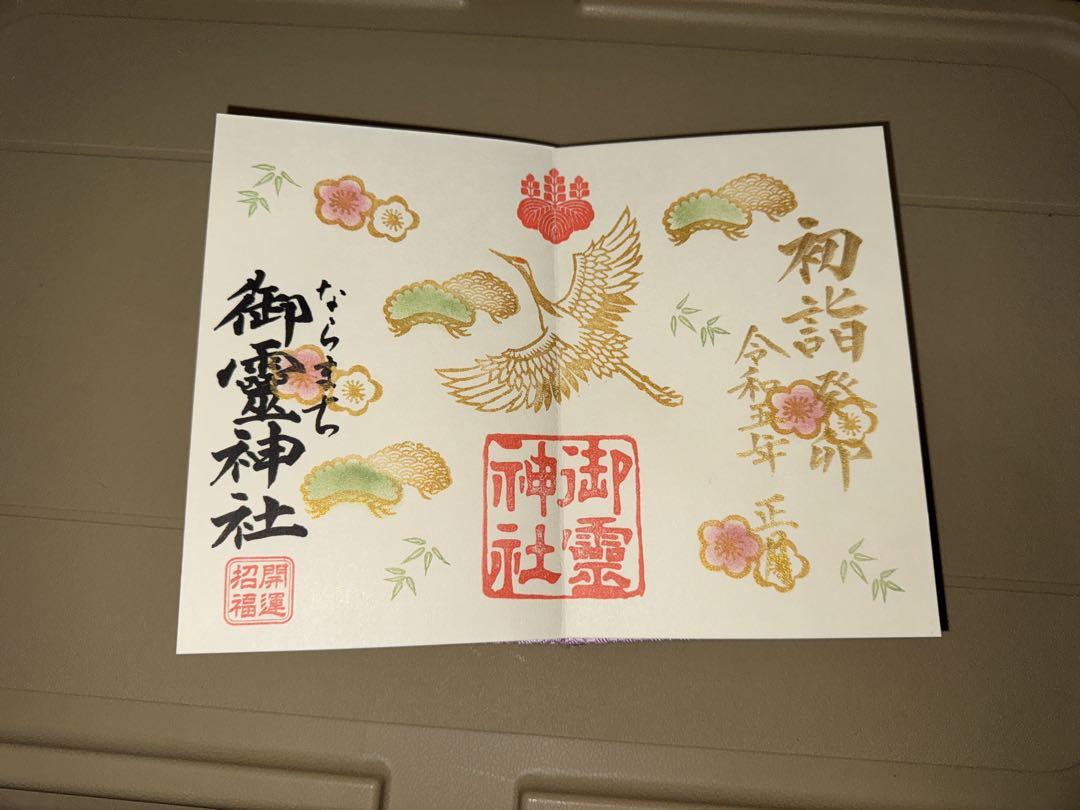 初詣 癸卯
令和五年
正月
御靈
神社
ならまち
御靈神社
開運
招福